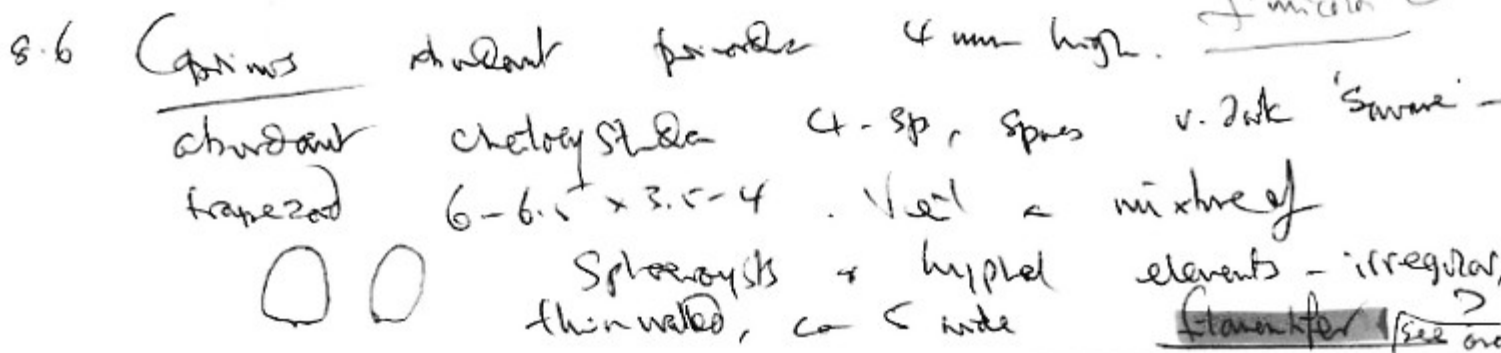 8.6 Coprinus abundant primordia 4 mm high.
abundant cheilocystidia 4-sp, spores v. dark 'square' -
trapezoid 6-6.5 x 3.5-4. Veil a mixture of
Sphaerocysts + hyphal elements - irregular,
thin walled, ca 5 wide filamentifer ? see